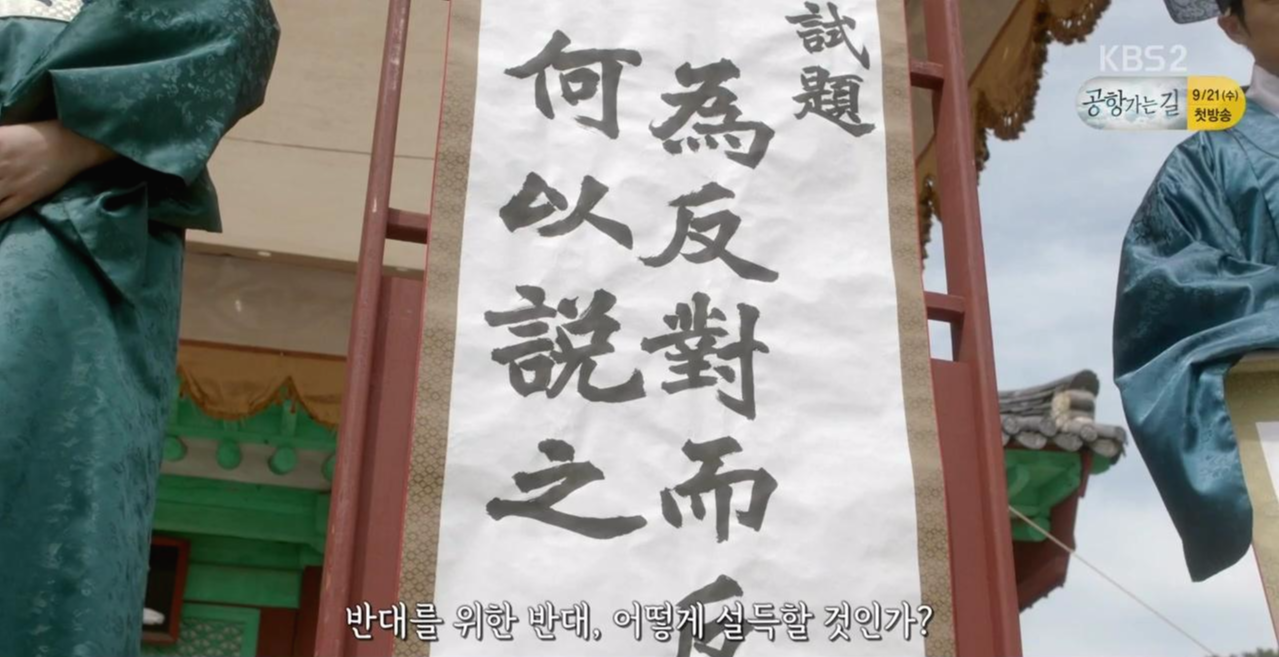 試題
為反對而反
何以説之
KBS2
공항가는 길
9/21(수)
첫방송
반대를 위한 반대, 어떻게 설득할 것인가?